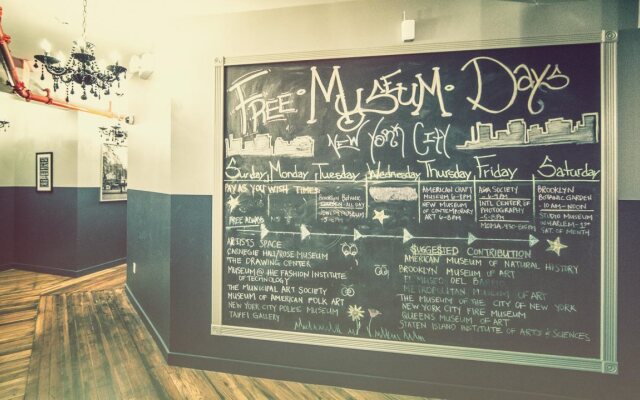 FREE · MUSEUM · DAYS
NEW YORK CITY
Sunday Monday Tuesday Wednesday Thursday Friday Saturday
PAY AS YOU WISH TIMES:
BROOKLYN BOTANIC
GARDEN - ALL DAY
AMERICAN CRAFT
MUSEUM 6-8PM
NEW MUSEUM
OF CONTEMPORARY
ART 6-8PM
ASIA SOCIETY
INTL CENTER OF
PHOTOGRAPHY
BROOKLYN
BOTANIC GARDEN
10AM-NOON
STUDIO MUSEUM
IN HARLEM - 1ST
SAT. OF MONTH
FREE ALWAYS
ARTISTS SPACE
CARNEGIE HALL/ROSE MUSEUM
THE DRAWING CENTER
MUSEUM @ THE FASHION INSTITUTE
OF TECHNOLOGY
THE MUNICIPAL ART SOCIETY
MUSEUM OF AMERICAN FOLK ART
NEW YORK CITY POLICE MUSEUM
TAIPEI GALLERY
SUGGESTED CONTRIBUTION
AMERICAN MUSEUM OF NATURAL HISTORY
BROOKLYN MUSEUM OF ART
EL MUSEO DEL BARRIO
METROPOLITAN MUSEUM OF ART
THE MUSEUM OF THE CITY OF NEW YORK
NEW YORK CITY FIRE MUSEUM
QUEENS MUSEUM OF ART
STATEN ISLAND INSTITUTE OF ARTS & SCIENCES